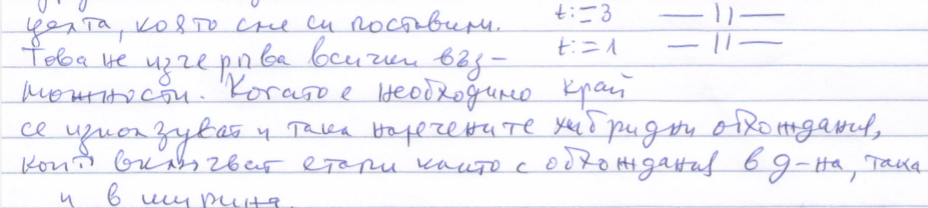 целта, която сме си поставили. t:=3 —— 11 ——
Това не изчерпва всички въз- t:=1 —— 11 ——
можности. Когато е необходимо край
се използват и така наречените хибридни обхождания,
които включват етапи както с обхождания в д-на, така
и в ширина.